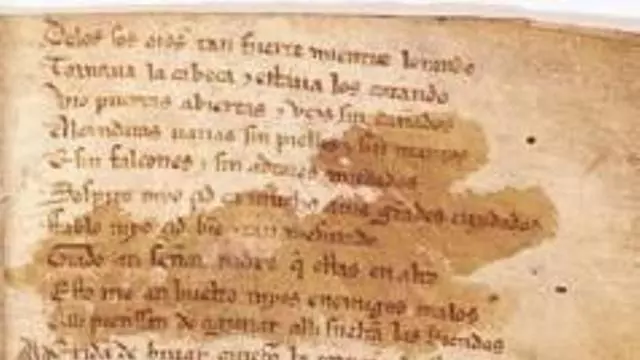 Delos sos oios tan fuerte mientre lorando
Tornaua la cabeça ⁊ estaua los catando
Vio puertas abiertas ⁊ vços sin cañados
Alcandaras uazias sin pielles ⁊ sin mantos
E sin falcones ⁊ sin adtores mudados
Sospiro myo çid ca mucho auie grandes cuydados
Fablo myo çid bie ⁊ tan mesurado
Grado a ti señor padre q estas en alto
Esto me an buelto myos enemigos malos
Alli pienssan de aguiiar alli sueltan las Riendas
Ala exida de biuar ouieron la